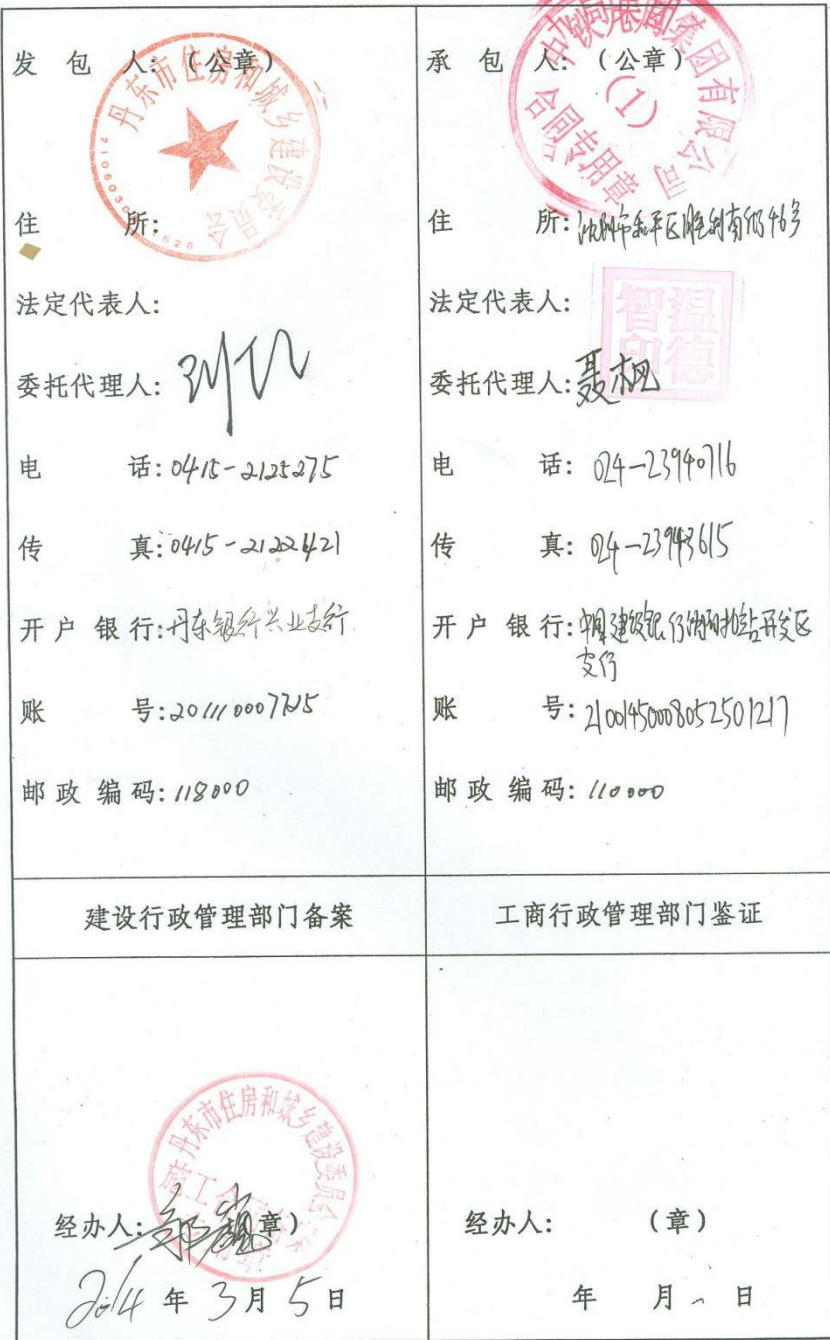 发包人:（公章）
丹东市住房和城乡建设委员会
住所:
法定代表人:
委托代理人:
电话:0415-2125275
传真:0415-2122421
开户银行:丹东银行兴业支行
账号:
邮政编码:118000
承包人:（公章）
集团有限公司
(1)
合同专用章
住所:沈阳市和平区胜利南街46号
法定代表人:
温德智印
委托代理人:聂枫
电话:024-23940716
传真:024-23943615
开户银行:中国建设银行沈阳开发区
支行
账号:21001450008052501217
邮政编码:110000
建设行政管理部门备案
工商行政管理部门鉴证
丹东市住房和城乡建设委员会
施工合同
经办人:章）
2014年3月5日
经办人:（章）
年月日